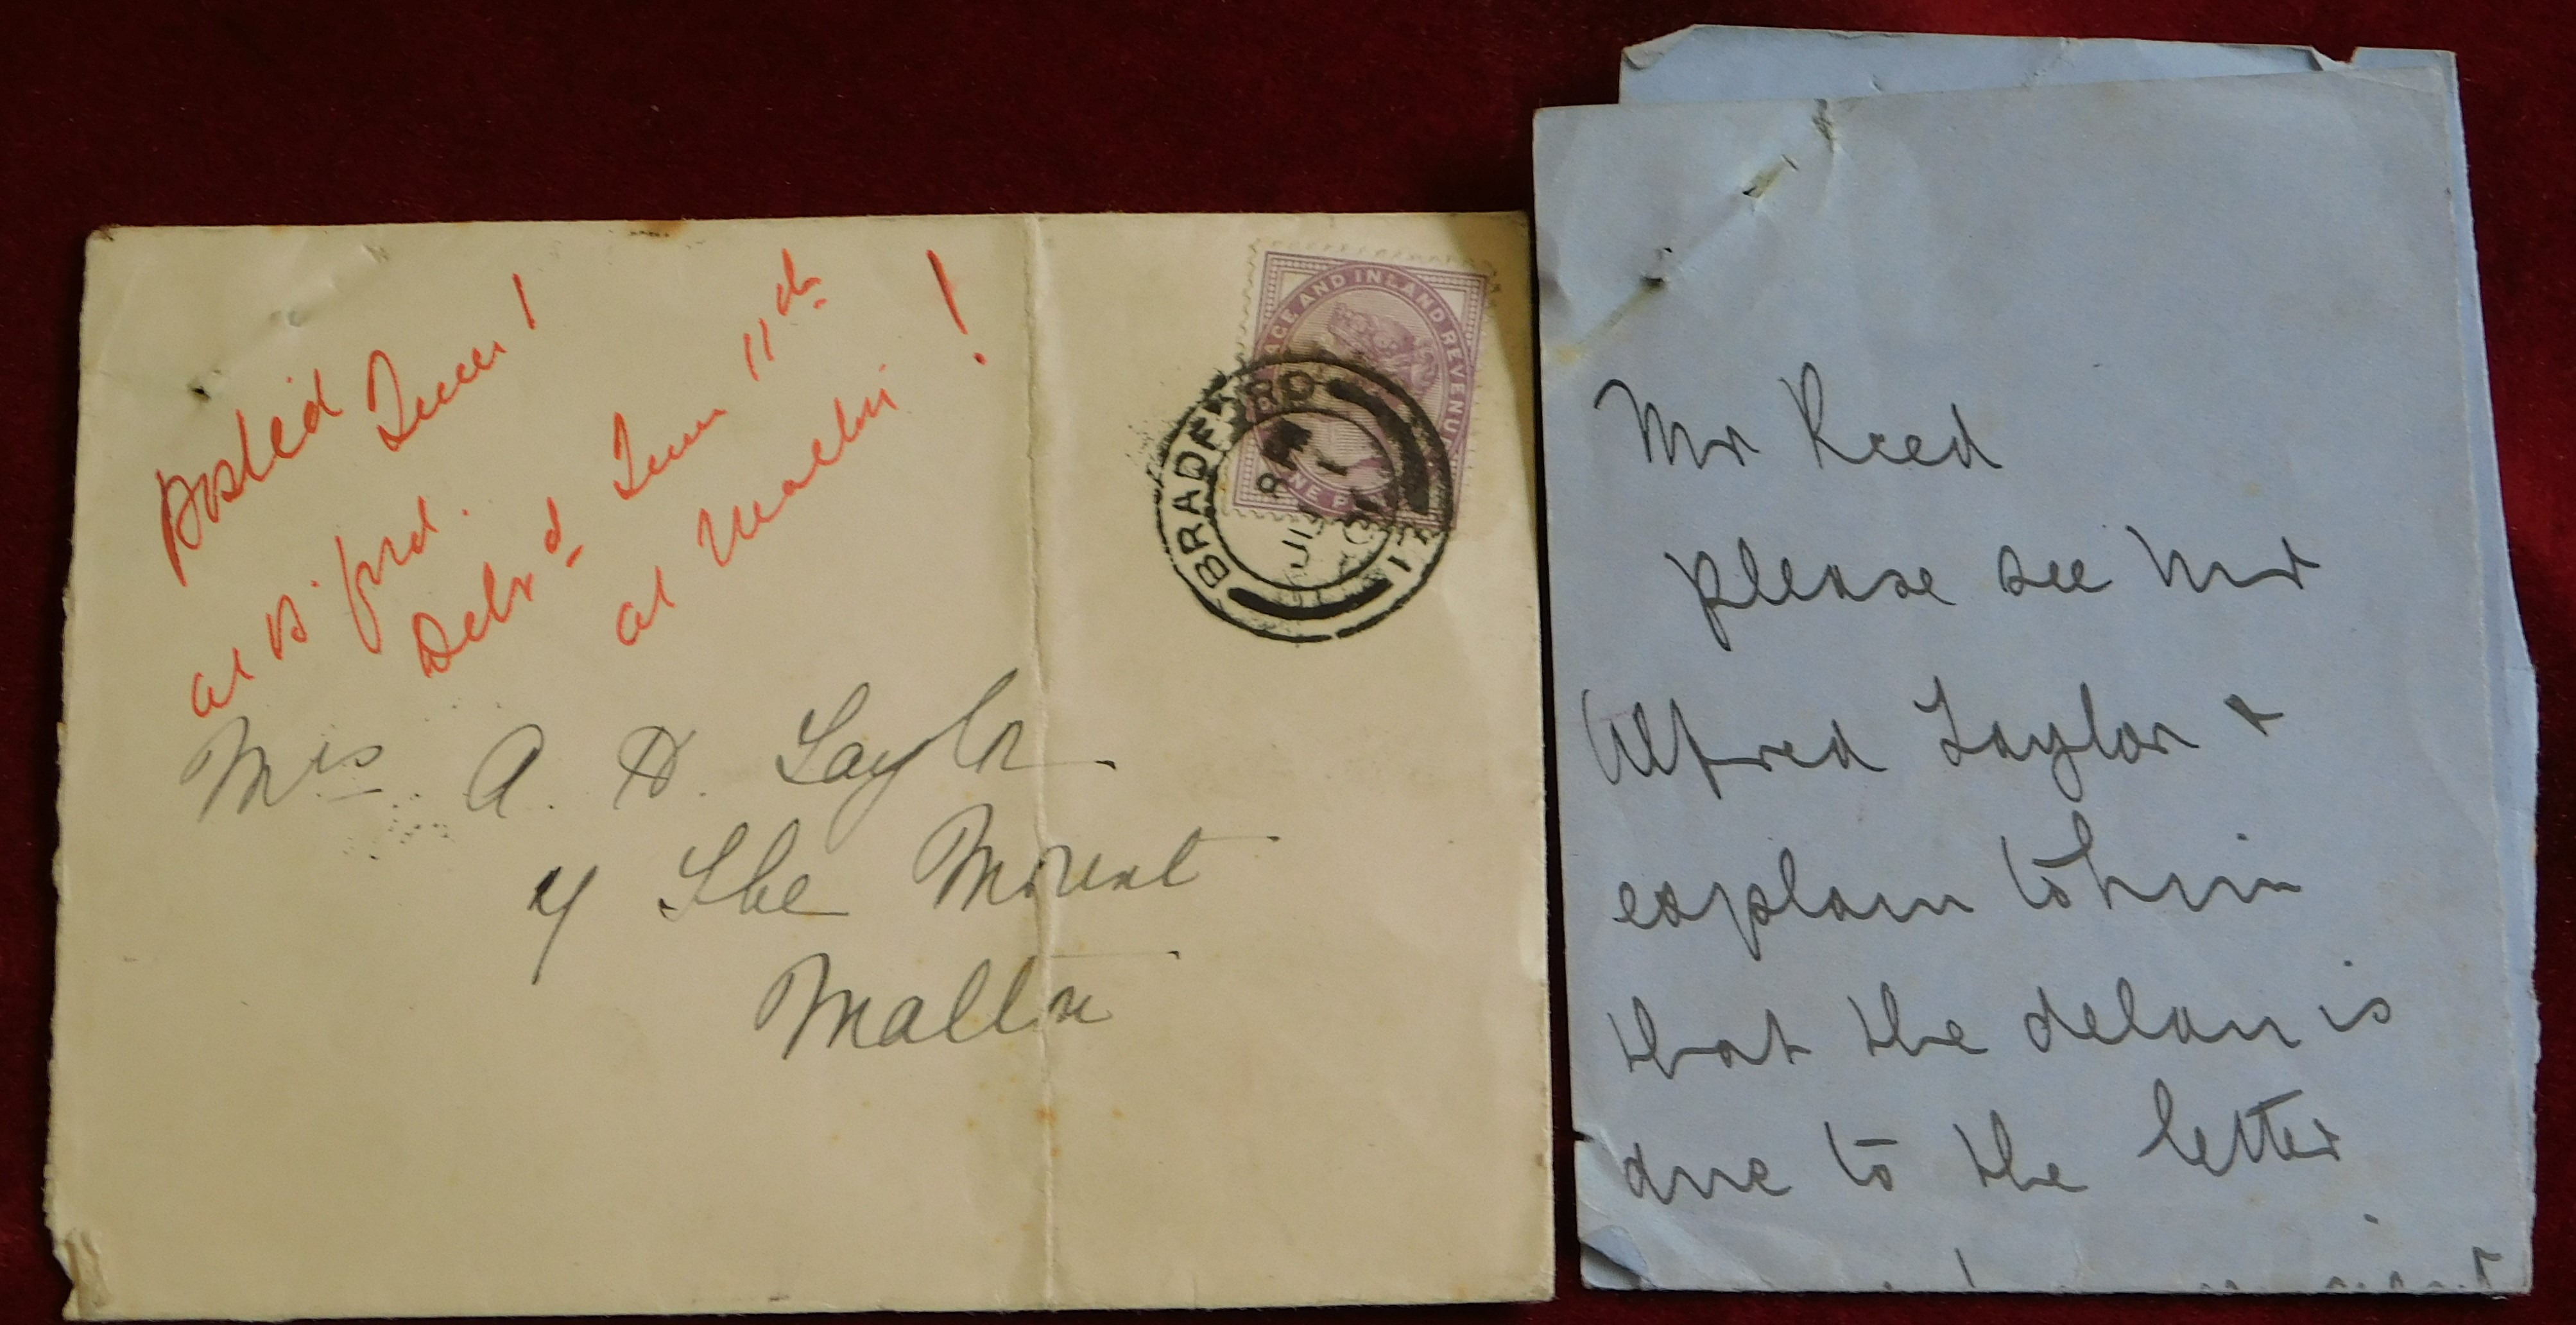 Posted June 1
at B'ford.
Delvd June 11th
at Malton !
Mrs A. D. Taylor
4 The Mount
Malton
POSTAGE AND INLAND REVENUE
ONE PENNY
BRADFORD
8 PM
JU 1
Mr Reed
please see Mr
Alfred Taylor &
explain to him
that the delay is
due to the letter